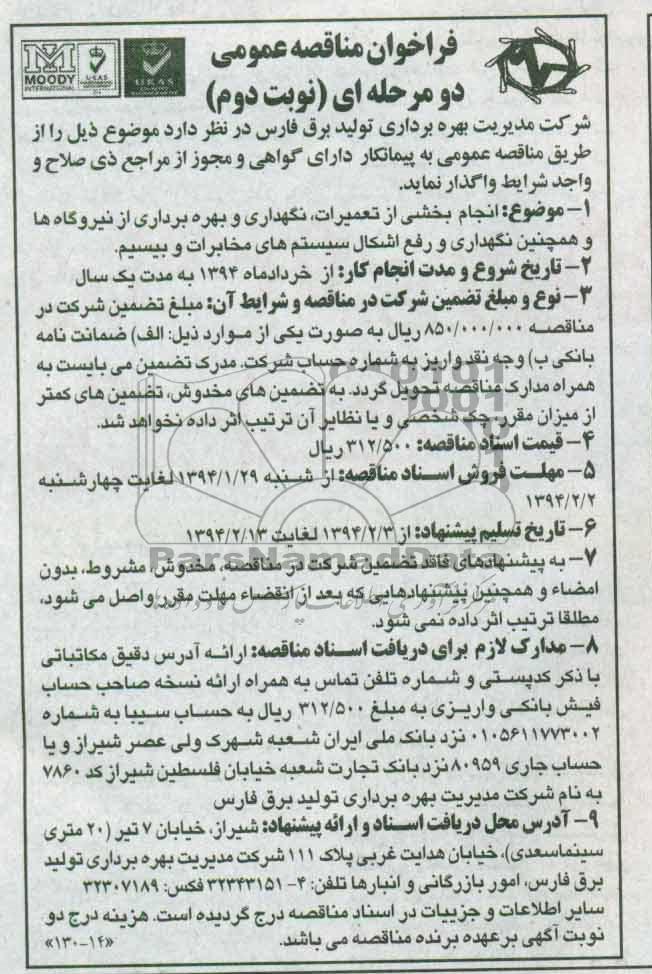 فراخوان مناقصه عمومی
دو مرحله ای (نوبت دوم)
MOODY
INTERNATIONAL
UKAS
UKAS
شرکت مدیریت بهره برداری تولید برق فارس در نظر دارد موضوع ذیل را از
طریق مناقصه عمومی به پیمانکار دارای گواهی و مجوز از مراجع ذی صلاح و
واجد شرایط واگذار نماید.
۱- موضوع: انجام بخشی از تعمیرات، نگهداری و بهره برداری از نیروگاه ها
و همچنین نگهداری و رفع اشکال سیستم های مخابرات و بیسیم.
۲- تاریخ شروع و مدت انجام کار: از خردادماه ۱۳۹۴ به مدت یک سال
۳- نوع و مبلغ تضمین شرکت در مناقصه و شرایط آن: مبلغ تضمین شرکت در
مناقصه ۸۵۰/۰۰۰/۰۰۰ ریال به صورت یکی از موارد ذیل: الف) ضمانت نامه
بانکی ب) وجه نقد واریز به شماره حساب شرکت. مدرک تضمین می بایست به
همراه مدارک مناقصه تحویل گردد. به تضمین های مخدوش، تضمین های کمتر
از میزان مقرر، چک شخصی و یا نظایر آن ترتیب اثر داده نخواهد شد.
۴- قیمت اسناد مناقصه: ۳۱۲/۵۰۰ ریال
۵- مهلت فروش اسناد مناقصه: از شنبه ۱۳۹۴/۱/۲۹ لغایت چهارشنبه
۱۳۹۴/۲/۲
۶- تاریخ تسلیم پیشنهاد: از ۱۳۹۴/۲/۳ لغایت ۱۳۹۴/۲/۱۳
ParsNamadData
۷- به پیشنهادهای فاقد تضمین شرکت در مناقصه، مخدوش، مشروط، بدون
امضاء و همچنین پیشنهادهایی که بعد از انقضاء مهلت مقرر واصل می شود،
مطلقا ترتیب اثر داده نمی شود.
۸- مدارک لازم برای دریافت اسناد مناقصه: ارائه آدرس دقیق مکاتباتی
با ذکر کدپستی و شماره تلفن تماس به همراه ارائه نسخه صاحب حساب
فیش بانکی واریزی به مبلغ ۳۱۲/۵۰۰ ریال به حساب سیبا به شماره
۰۱۰۵۶۱۱۷۷۳۰۰۲ نزد بانک ملی ایران شعبه شهرک ولی عصر شیراز و یا
حساب جاری ۸۰۹۵۹ نزد بانک تجارت شعبه خیابان فلسطین شیراز کد ۷۸۶۰
به نام شرکت مدیریت بهره برداری تولید برق فارس
۹- آدرس محل دریافت اسناد و ارائه پیشنهاد: شیراز، خیابان ۷ تیر (۲۰ متری
سینماسعدی)، خیابان هدایت غربی پلاک ۱۱۱ شرکت مدیریت بهره برداری تولید
برق فارس، امور بازرگانی و انبارها تلفن: ۴- ۳۲۳۴۳۱۵۱ فکس: ۳۲۳۰۷۱۸۹
سایر اطلاعات و جزییات در اسناد مناقصه درج گردیده است. هزینه درج دو
نوبت آگهی بر عهده برنده مناقصه می باشد.
«۱۴-۱۳۰»